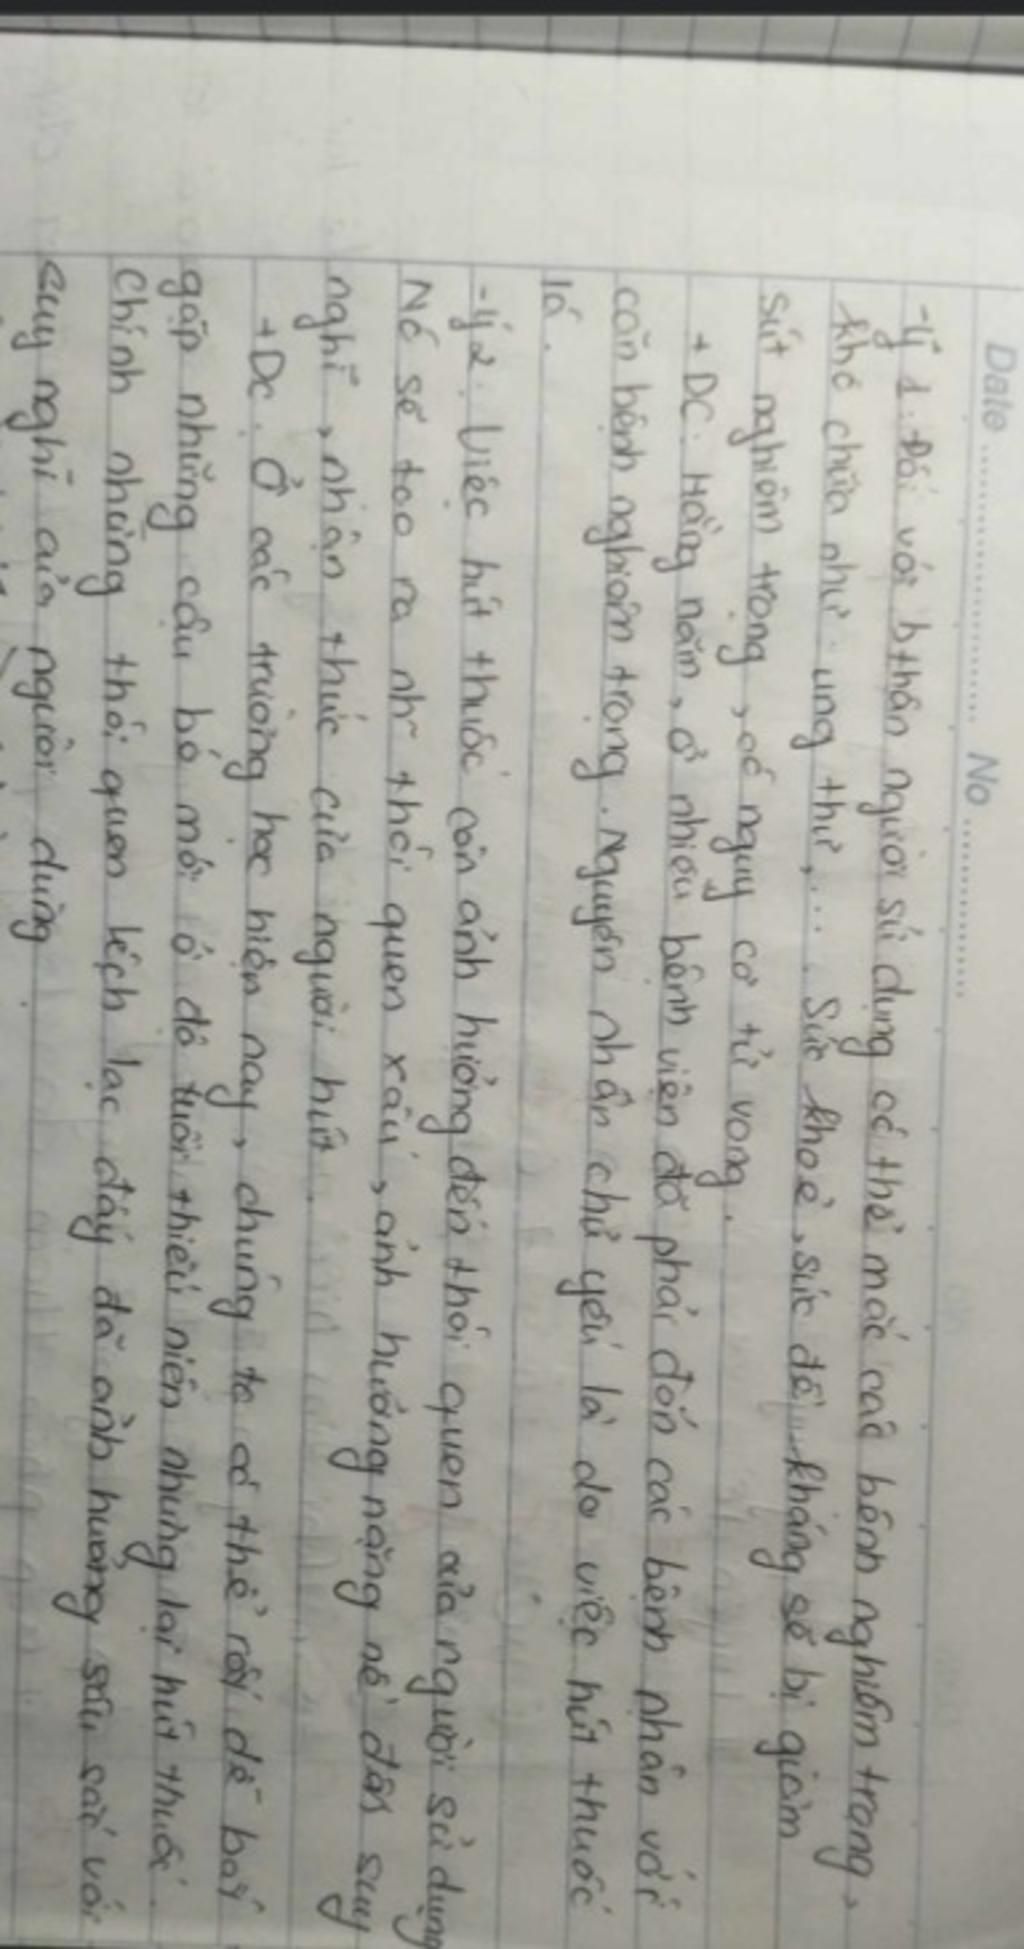 Date ..................... No ................
-Lý 1. Đối với bthân người sử dụng có thể mắc các bệnh nghiêm trọng,
khó chữa như: ung thư,... Sức khoẻ, sức đề kháng sẽ bị giảm
sút nghiêm trọng, có nguy cơ tử vong.
+ DC: Hằng năm, ở nhiều bệnh viện đã phải đón các bệnh nhân với
căn bệnh nghiêm trọng. Nguyên nhân chủ yếu là do việc hút thuốc
lá.
-Lý 2. Việc hút thuốc còn ảnh hưởng đến thói quen của người sử dụng
Nó sẽ tạo ra nh~ thói quen xấu, ảnh hưởng nặng nề đến suy
nghĩ, nhận thức của người hút.
+DC. Ở các trường học hiện nay, chúng ta có thể rất dễ bắt
gặp những cậu bé mới ở độ tuổi thiếu niên nhưng lại hút thuốc.
Chính những thói quen lệch lạc đấy đã ảnh hưởng sâu sắc với
suy nghĩ của người dùng